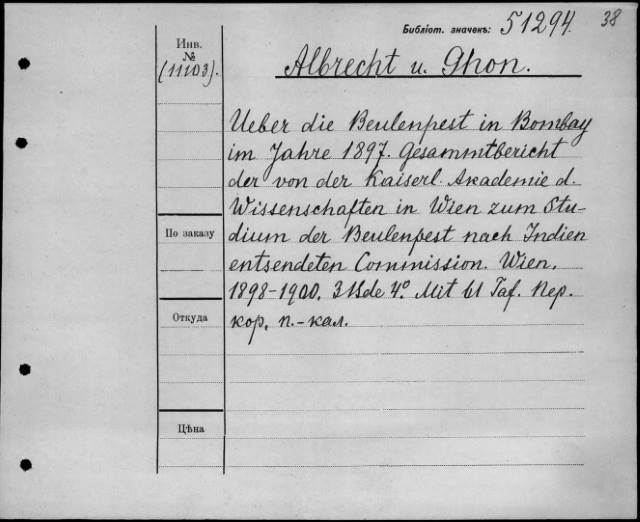 Библіот. значекъ: 51294. 38
Инв.
№
(11103).
Albrecht u. Ghon.
Ueber die Beulenpest in Bombay
im Jahre 1897. Gesammtbericht
der von der Kaiserl. Akademie d.
Wissenschaften in Wien zum Stu-
dium der Beulenpest nach Indien
entsendeten Commission. Wien.
1898-1900. 3 Bde 4º. Mit 61 Taf. Пер.
кор. п.-кал.
По заказу
Откуда
Цѣна